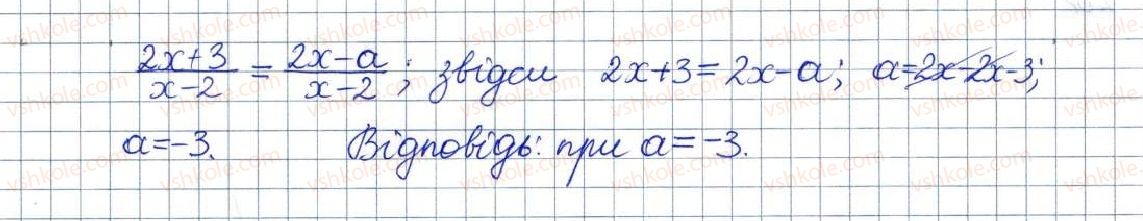 (2x+3)/(x-2) = (2x-a)/(x-2); звідси 2x+3=2x-a; a=2x-2x-3;
a=-3. Відповідь: при a=-3.